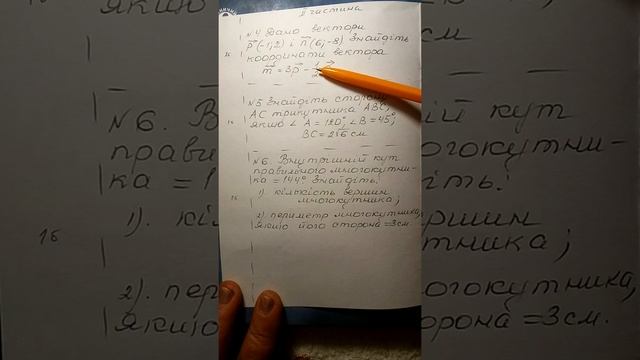 II частина
№4 Дано вектори
p(-1;2) і n(6;-8) Знайдіть
координати вектора
m = 3p - 1
№5 Знайдіть сторону
АС трикутника АВС,
якщо ∠A = 120°, ∠B = 45°;
BC = 2√6 см
№6. Внутрішній кут
правильного многокутни-
ка = 144° Знайдіть:
1). кількість вершин
многокутника;
2). периметр многокутника,
якщо його сторона = 3 см.